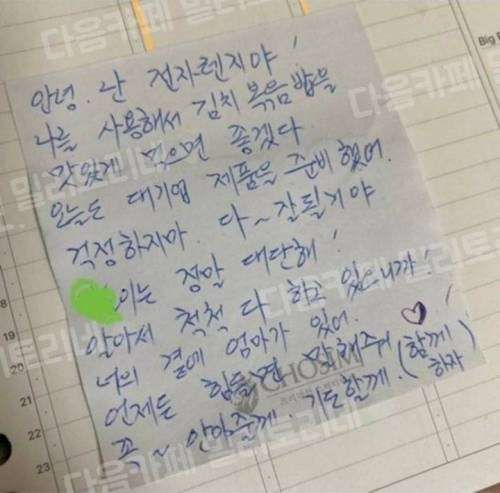 안녕. 난 전자렌지야!
나를 사용해서 김치볶음밥을
맛있게 먹으면 좋겠다
오늘도 대기업 제품을 준비했어.
걱정하지마. 다~잘될거야
이는 정말 대단해!
알아서 척척 다 하고 있으니까!
너의 곁에 엄마가 있어.
언제든 힘들면 말해주거
꼭~ 안아줄게. 기도할께. (함께 하자)
CHOSIM
Big
19
20
21
22
23
다음카페 밀리토리네
다음카페 밀리토리네